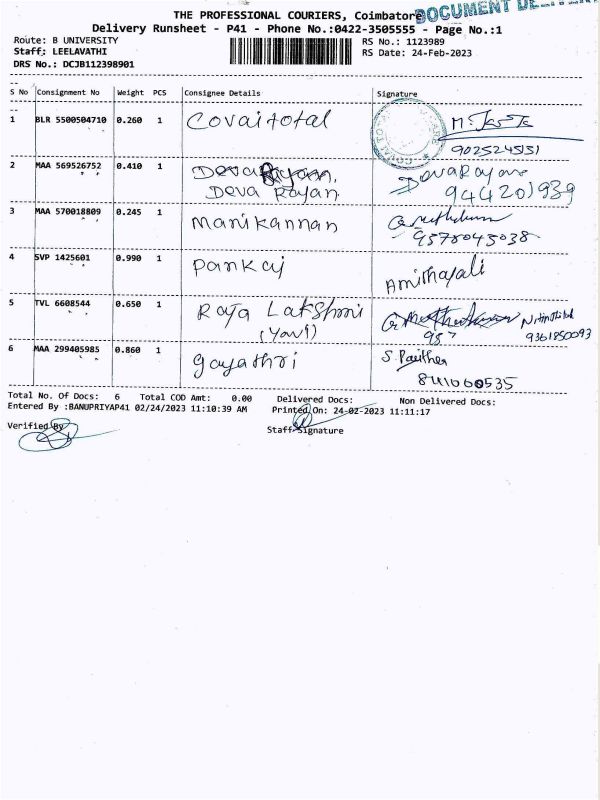 THE PROFESSIONAL COURIERS, Coimbatore
DOCUMENT
Delivery Runsheet - P41 - Phone No.:0422-3505555 - Page No.:1
Route: B UNIVERSITY RS No.: 1123989
Staff: LEELAVATHI RS Date: 24-Feb-2023
DRS No.: DCJB112398901
S No Consignment No Weight PCS Consignee Details Signature
1 BLR 5500504710 0.260 1 Covaitotal
2 MAA 569526752 0.410 1 Deva
Deva Rayan
3 MAA 570018809 0.245 1 Manikannan
9578045038
4 SVP 1425601 0.990 1 Pankaj
5 TVL 6608544 0.650 1 Raja Lakshmi
9361850093
6 MAA 299405985 0.860 1 gayathri
Total No. Of Docs: 6 Total COD Amt: 0.00 Delivered Docs: Non Delivered Docs:
Entered By :BANUPRIYAP41 02/24/2023 11:10:39 AM Printed On: 24-02-2023 11:11:17
Verified By Staff Signature